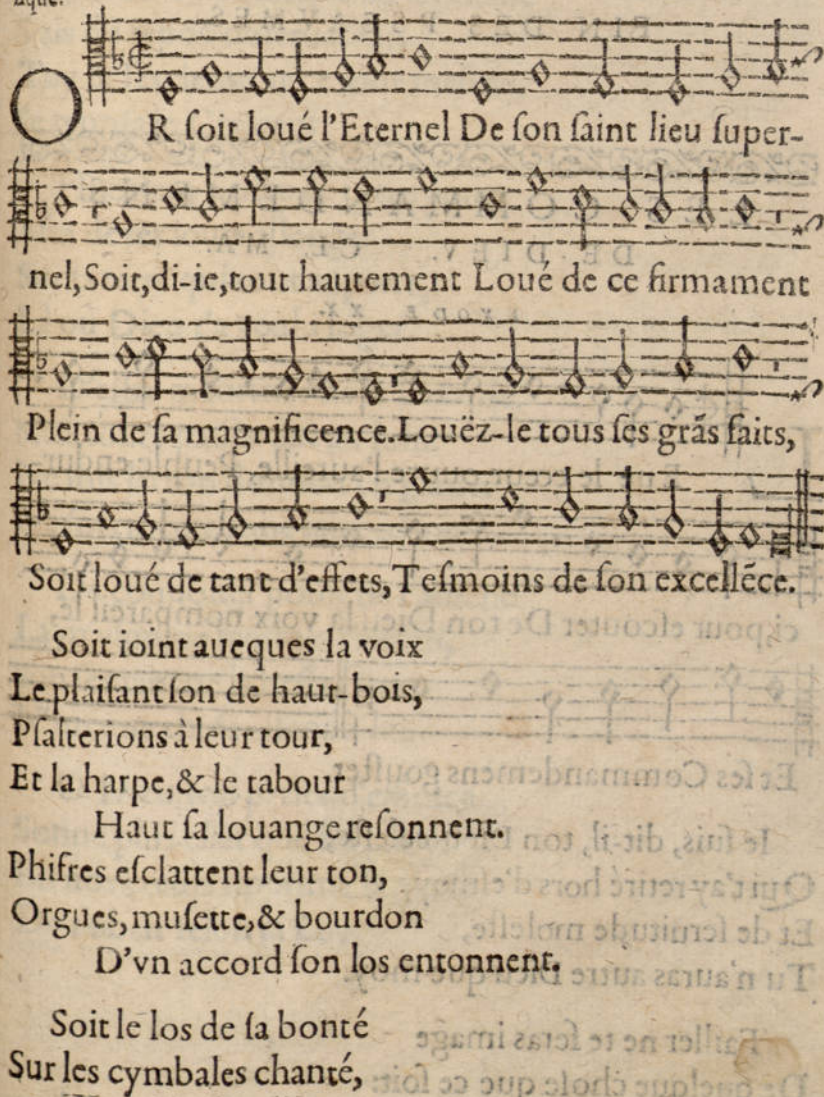 OR ſoit loué l'Eternel De ſon ſaint lieu ſuper-
nel, Soit, di-ie, tout hautement Loué de ce firmament
Plein de ſa magnificence. Louëz-le tous ſes grãs faits,
Soit loué de tant d'effets, Teſmoins de ſon excellẽce.
Soit ioint auecques la voix
Le plaiſant ſon de haut-bois,
Pſalterions à leur tour,
Et la harpe, & le tabour
Haut ſa louange reſonnent.
Phifres eſclattent leur ton,
Orgues, muſette, & bourdon
D'vn accord ſon los entonnent.
Soit le los de ſa bonté
Sur les cymbales chanté,